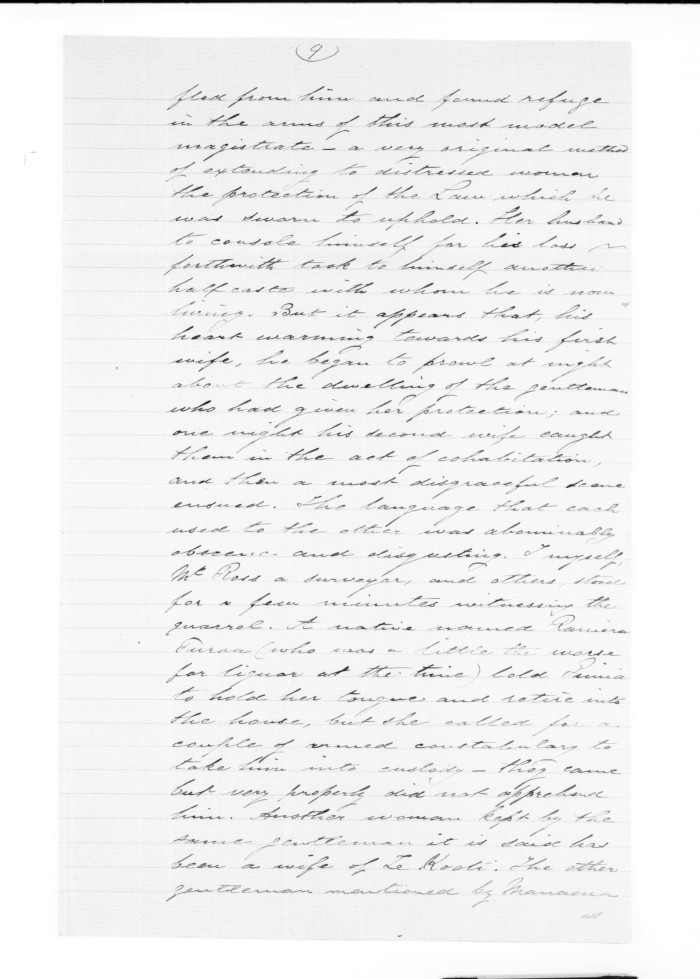 9
fled from him and found refuge
in the arms of this most model
magistrate – a very original method
of extending to distressed women
the protection of the Law which he
was sworn to uphold. Her husband
to console himself for his loss
forthwith took to himself another
half caste with whom he is now
living. But it appears that his
heart warming towards his first
wife, he began to prowl at night
about the dwelling of the gentleman
who had given her protection; and
one night his second wife caught
them in the act of cohabitation,
and then a most disgraceful scene
ensued. The language that each
used to the other was abominably
obscene and disgusting. I myself,
Mr Ross a surveyor, and others, stood
for a few minutes witnessing the
quarrel. A native named Raniera
Turoa (who was a little the worse
for liquor at the time) told
to hold her tongue and retire into
the house, but she called for a
couple of armed constabulary to
take him into custody – they came
but very properly did not apprehend
him. Another woman kept by the
same gentleman it is said has
been a wife of Te Kooti. The other
gentleman mentioned by Manaena